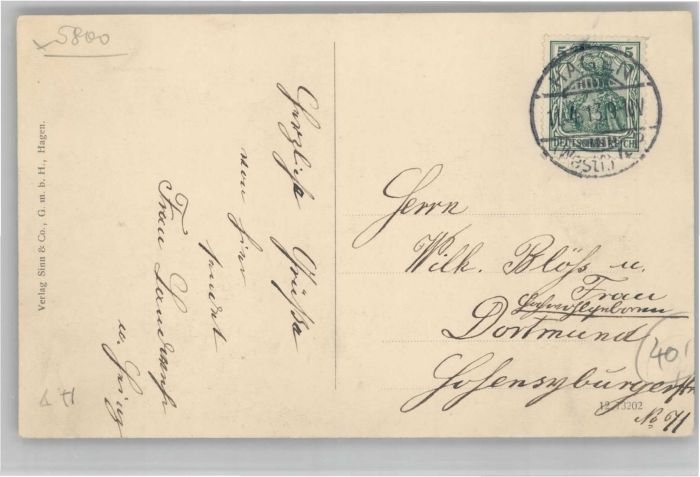 5800
Verlag Sinn & Co., G. m. b. H., Hagen.
Herzliche Grüße
von hier
sendet
Frau
u.
5 5
HAGEN
13
(WESTF.)
DEUTSCHES REICH
Herrn
Wilh. Blöß u.
Frau
Dortmund
Hohensyburgerstr
No 67I
40
12 73202